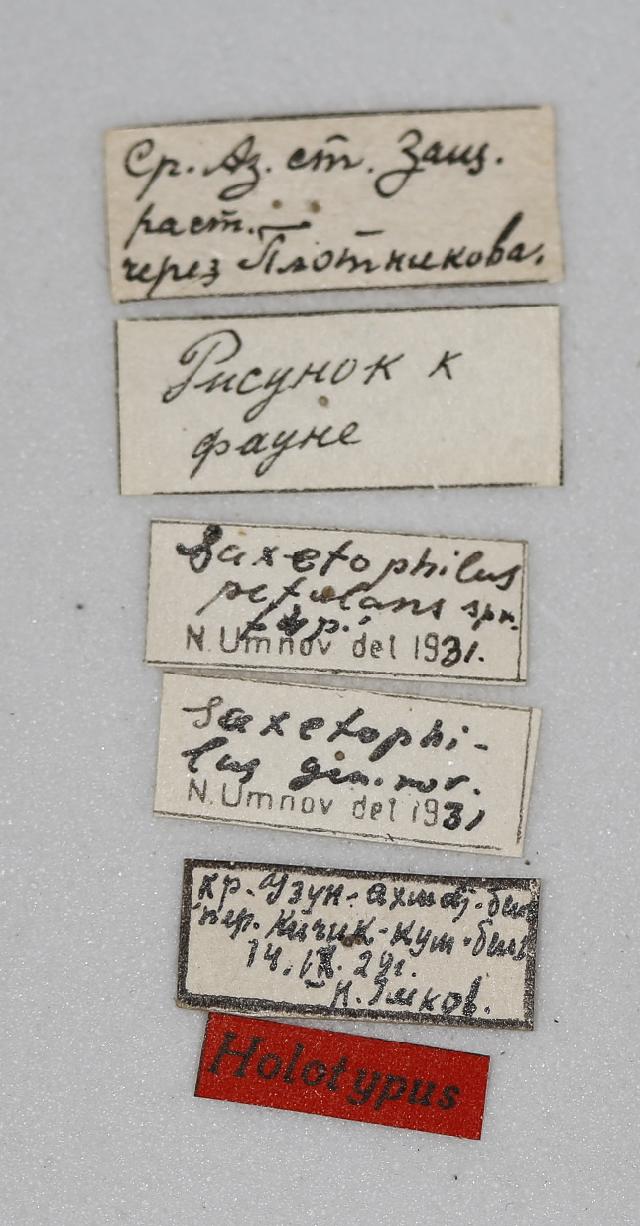 Ср. Аз. ст. Защ.
раст.
через Плотникова.
Рисунок к
фауне
Saxetophilus
petulans sp.n.
typ.
N. Umnov det 1931.
Saxetophi-
lus gen. nov.
N. Umnov det 1931
хр. Узун-ахмат-
пер. Кичик-кум-бель
14.IX.29г.
Н. Умнов.
Holotypus